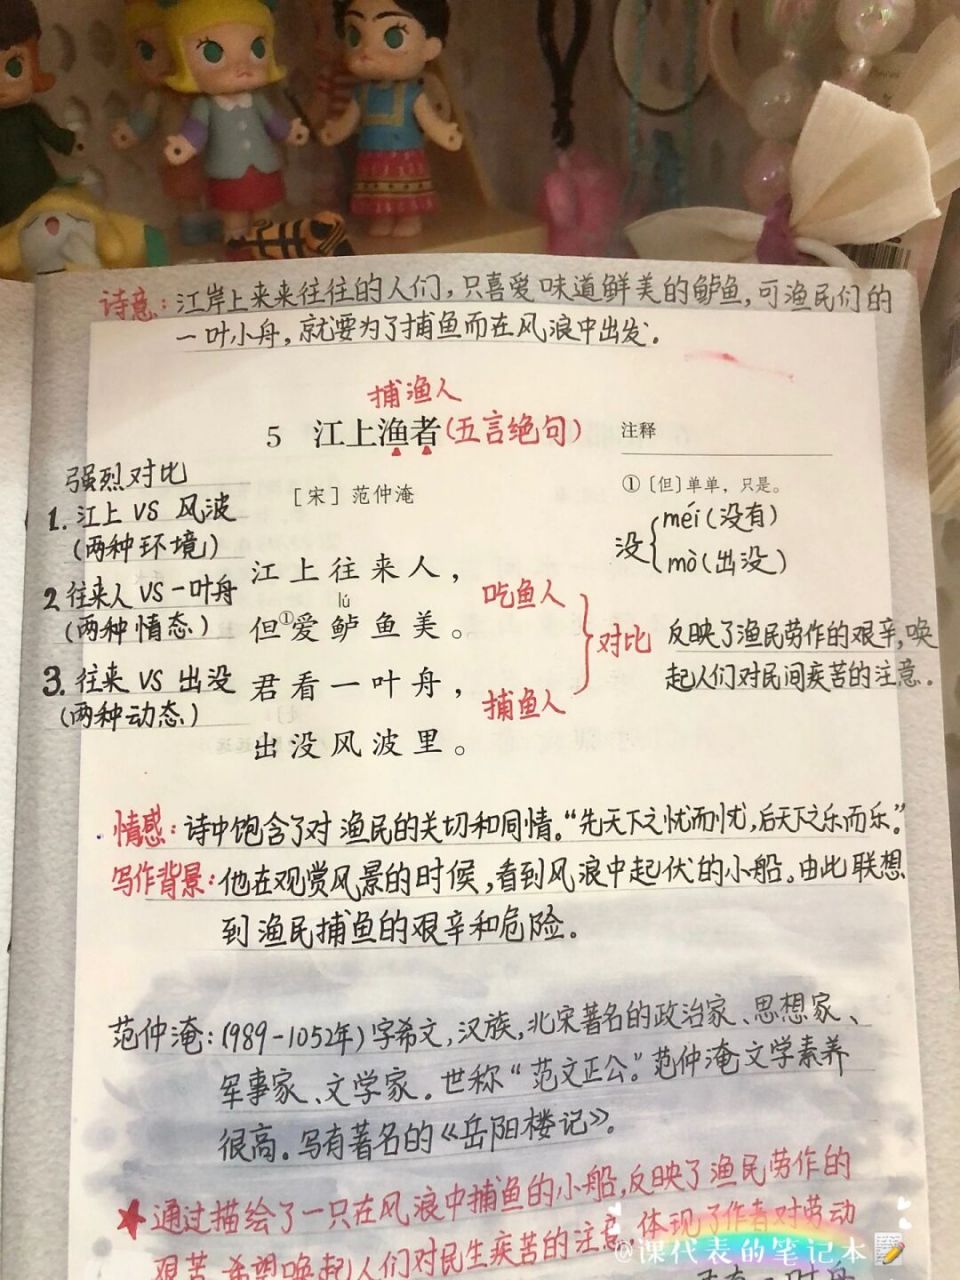 诗意：江岸上来来往往的人们，只喜爱味道鲜美的鲈鱼，可渔民们的
一叶小舟，就要为了捕鱼而在风浪中出发。
捕渔人
5 江上渔者(五言绝句)
注释
[宋] 范仲淹
①〔但〕单单，只是。
没 méi(没有)
mò(出没)
强烈对比
1. 江上 VS 风波
(两种环境)
2. 往来人 VS 一叶舟
(两种情态)
3. 往来 VS 出没
(两种动态)
江上往来人，
lú
但①爱鲈鱼美。
君看一叶舟，
出没风波里。
吃鱼人
捕鱼人
对比
反映了渔民劳作的艰辛，唤
起人们对民间疾苦的注意.
情感：诗中饱含了对渔民的关切和同情。“先天下之忧而忧，后天下之乐而乐。”
写作背景：他在观赏风景的时候，看到风浪中起伏的小船。由此联想
到渔民捕鱼的艰辛和危险。
范仲淹：(989-1052年)字希文，汉族，北宋著名的政治家、思想家、
军事家、文学家。世称“范文正公。”范仲淹文学素养
很高。写有著名的《岳阳楼记》。
★通过描绘了一只在风浪中捕鱼的小船，反映了渔民劳作的
艰苦，希望唤起人们对民生疾苦的注意，体现了作者对劳动
@课代表的笔记本